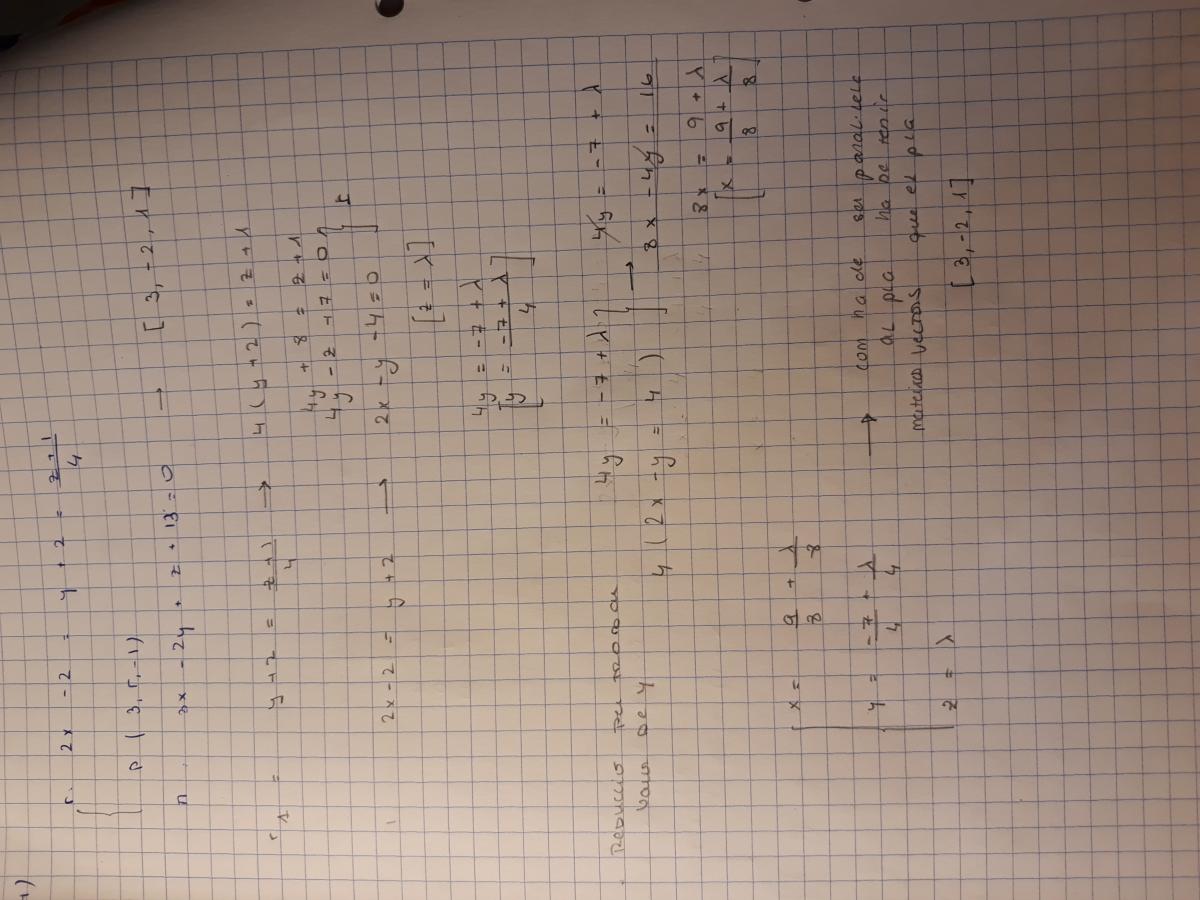 r. 2x - 2 = y + 2 = \frac{z+1}{4}
P ( 3, 5, -1 )
π. 3x - 2y + z + 13 = 0 → [ 3, -2, 1 ]
r1 = y + 2 = \frac{z+1}{4} → 4 ( y + 2 ) = z + 1
4y + 8 = z + 1
4y - z + 7 = 0
2x - 2 = y + 2 → 2x - y - 4 = 0
[ z = λ ]
4y = -7 + λ
[ y = \frac{-7 + λ}{4} ]
Reducció per trobar
valor de y
4y = -7 + λ → 4y = -7 + λ
4 ( 2x - y = 4 ) 8x - 4y = 16
8x = 9 + λ
[ x = \frac{9}{8} + \frac{λ}{8} ]
x = \frac{9}{8} + \frac{λ}{8}
y = \frac{-7}{4} + \frac{λ}{4} → com ha de ser paral·lela
al pla ha de tenir
mateixos vectors que el pla
z = λ [ 3, -2, 1 ]